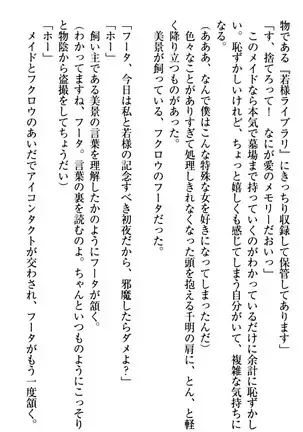 物である『若様ライブラリ』にきっちり収録して保管してありますよ」
「す、捨てろぉ！　なにが愛のメモリーだおいっ」
このメイドなら本気で墓場まで持っていくのがわかっているだけに余計に恥ずかし
い。恥ずかしいけれど、ちょっと嬉しくも感じてしまう自分がいて、複雑な気持ちに
なる。
（あああ、なんで僕はこんな特殊な女を好きになってしまったんだ）
色々なことがありすぎて処理しきれなくなった頭を抱える千明の肩に、とん、と軽
く降り立つものがあった。
美景が飼っている、フクロウのフータだった。
「ホー」
「フータ、今日は私と若様の記念すべき初夜だから、邪魔したらダメよ？」
「ホー」
飼い主である美景の言葉を理解したかのようにフータが頷く。
（わかってますね、フータ。言葉の裏を読むのよ。ちゃんといつものようにこっそり
と物陰から盗撮をしてちょうだい）
「ホー」
メイドとフクロウのあいだでアイコンタクトが交わされ、フータがもう一度頷く。